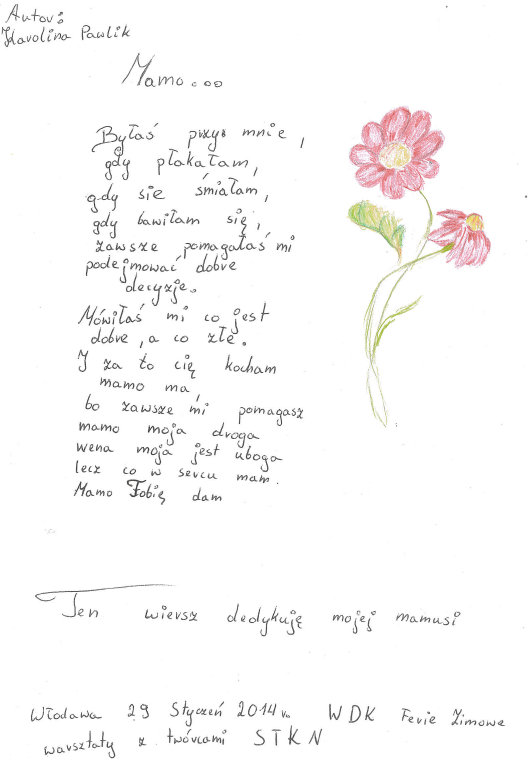 Autor:
Karolina Pawlik
Mamo...
Byłaś przy mnie,
gdy płakałam,
gdy sie śmiałam,
gdy bawiłam się,
zawsze pomagałaś mi
podejmować dobre
decyzje.
Mówiłaś mi co jest
dobre, a co złe.
I za to cię kocham
mamo ma,
bo zawsze mi pomagasz
mamo moja droga
wena moja jest uboga
lecz co w sercu mam.
Mamo Tobię dam
Ten wiersz dedykuję mojej mamusi
Włodawa 29 Styczeń 2014r. WDK Ferie Zimowe
warsztaty z twórcami STKN